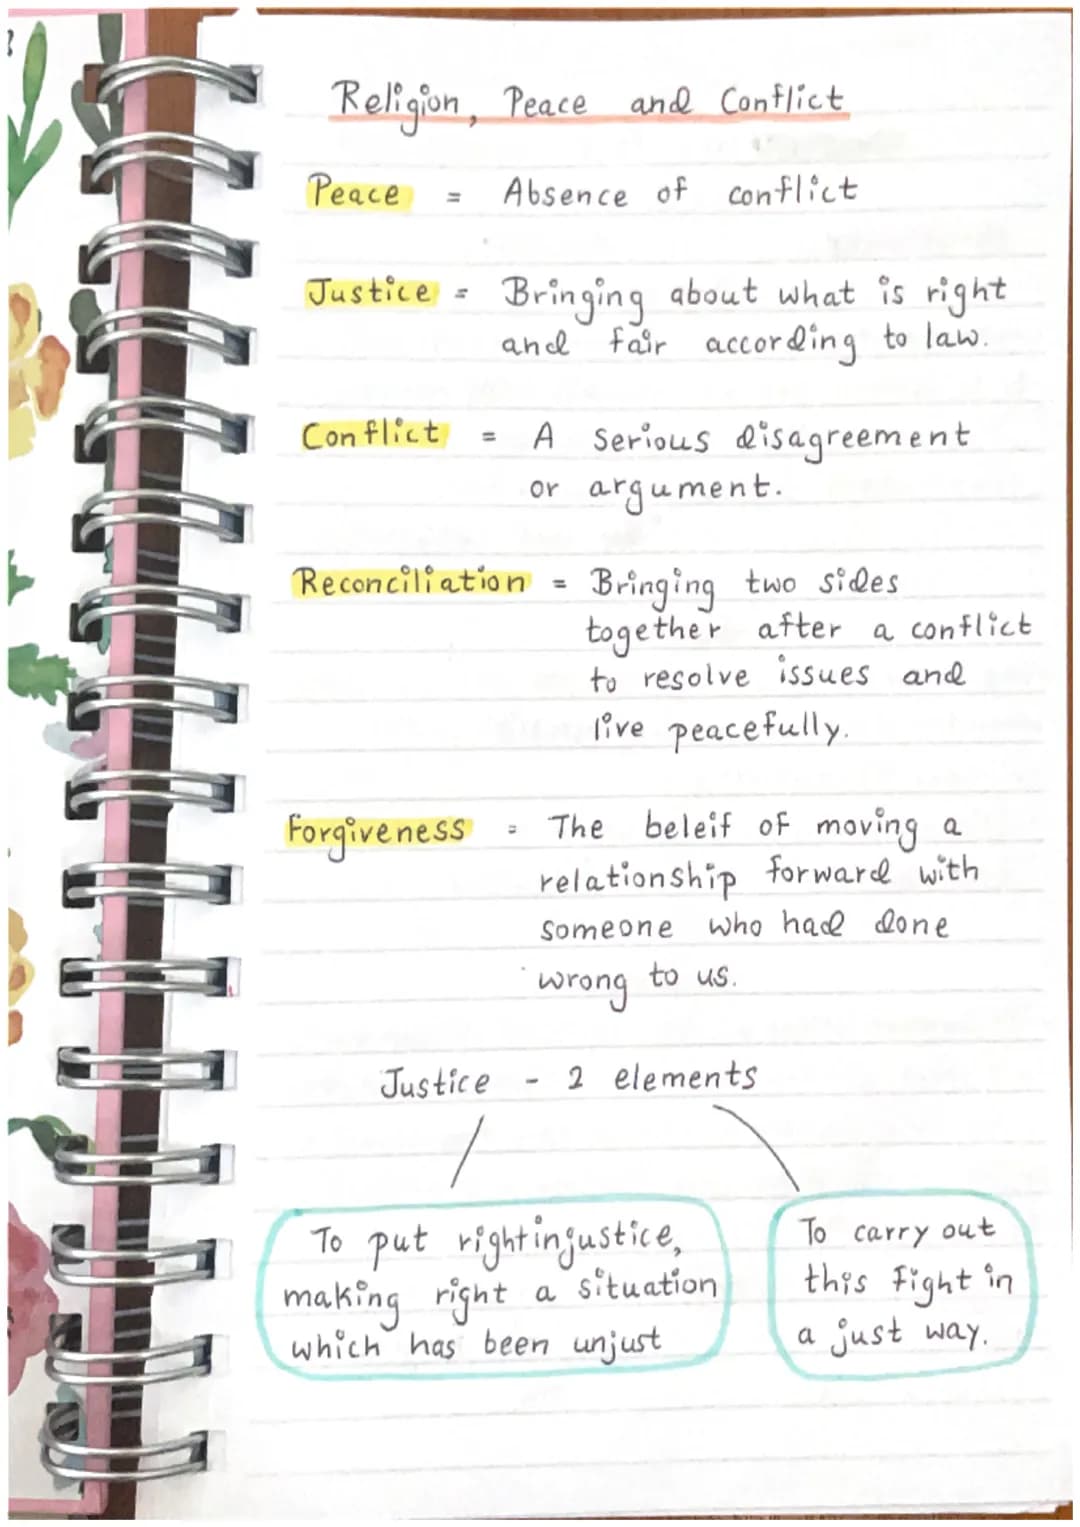 Religion, Peace and Conflict
Peace = Absence of conflict
Justice = Bringing about what is right
and fair according to law.
Conflict = A serious disagreement
or argument.
Reconciliation = Bringing two sides
together after a conflict
to resolve issues and
live peacefully.
Forgiveness = The beleif of moving a
relationship forward with
someone who had done
wrong to us.
Justice - 2 elements
To put right injustice,
making right a situation
which has been unjust
To carry out
this fight in
a just way.